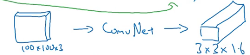 100×100×3 → ConvNet → 3×3×16